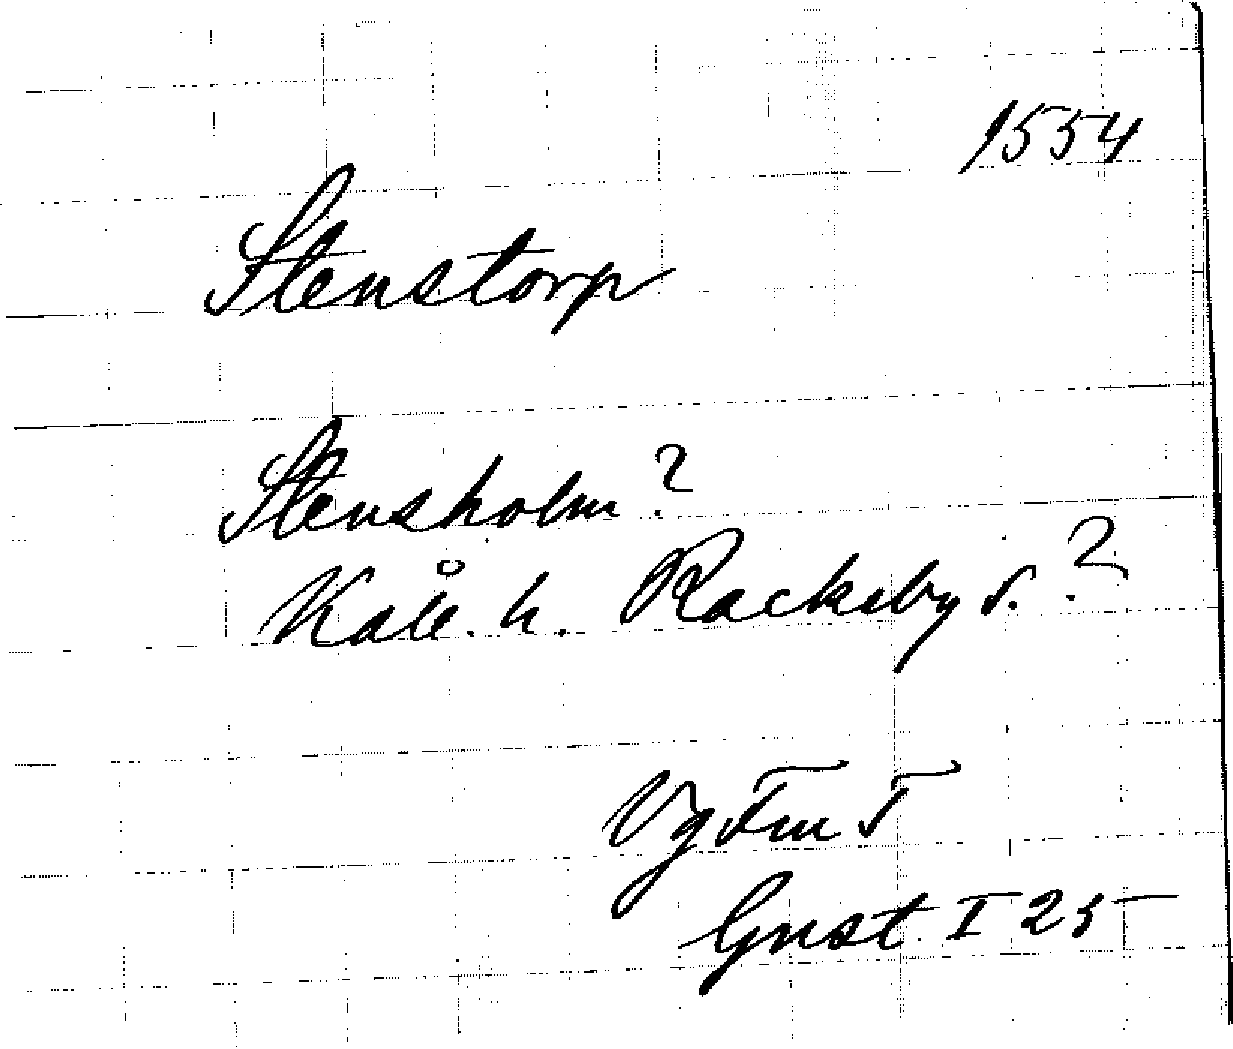 1554
Stenstorp
Stensholm?
Kåll. h. Racksby s.?
Vg Fm T
Gnst. I 25